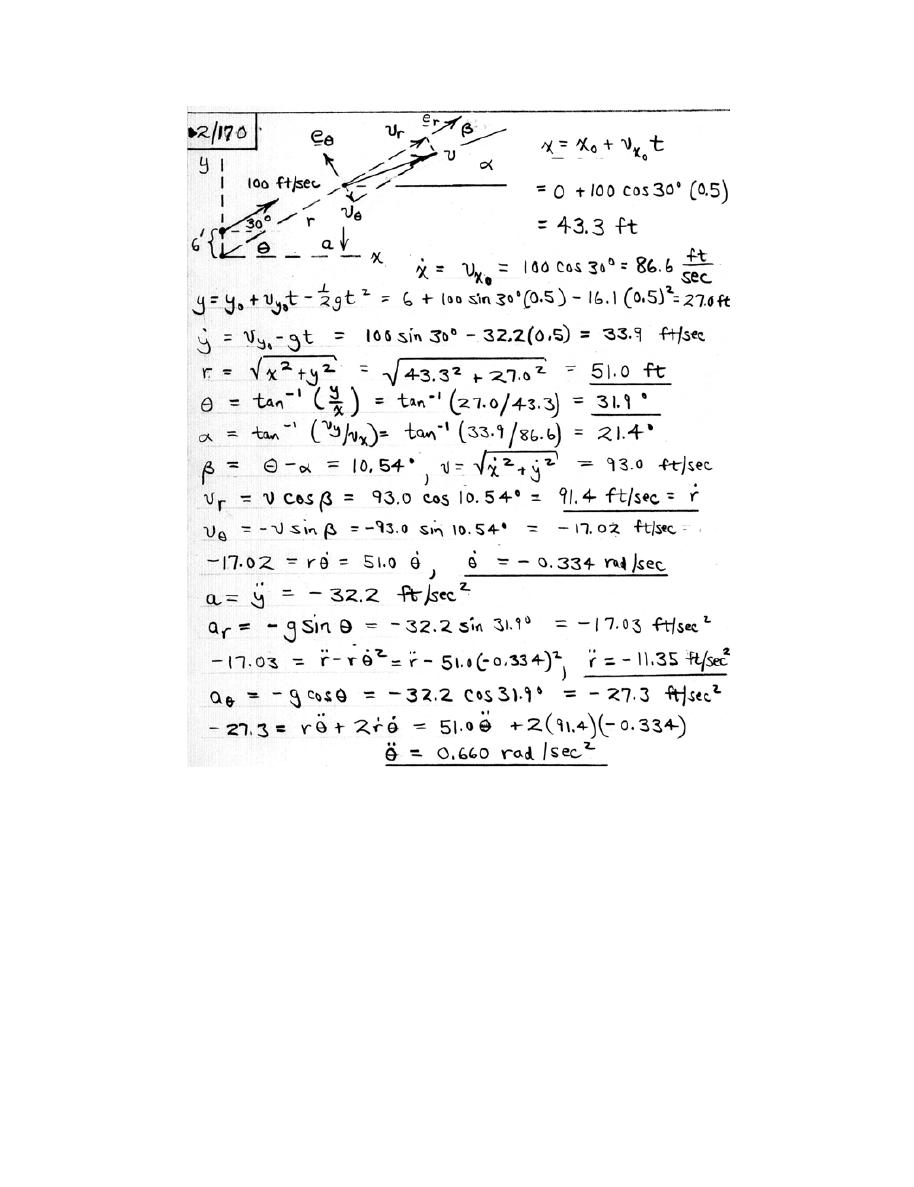 2/170
e_r
v_r
β
e_θ
v
x = x₀ + v_x₀ t
y
α
100 ft/sec
= 0 + 100 cos 30° (0.5)
30°
r
v_θ
= 43.3 ft
6'
θ
a
x
ẋ = v_x₀ = 100 cos 30° = 86.6 ft/sec
y = y₀ + v_y₀ t - ½gt² = 6 + 100 sin 30° (0.5) - 16.1 (0.5)² = 27.0 ft
ẏ = v_y₀ - gt = 100 sin 30° - 32.2(0.5) = 33.9 ft/sec
r = √(x² + y²) = √(43.3² + 27.0²) = 51.0 ft
θ = tan⁻¹ (y/x) = tan⁻¹ (27.0/43.3) = 31.9°
α = tan⁻¹ (v_y/v_x) = tan⁻¹ (33.9/86.6) = 21.4°
β = θ - α = 10.54°, v = √(ẋ² + ẏ²) = 93.0 ft/sec
v_r = v cos β = 93.0 cos 10.54° = 91.4 ft/sec = ṙ
v_θ = -v sin β = -93.0 sin 10.54° = -17.02 ft/sec
-17.02 = rθ̇ = 51.0 θ̇, θ̇ = -0.334 rad/sec
a = ÿ = -32.2 ft/sec²
a_r = -g sin θ = -32.2 sin 31.9° = -17.03 ft/sec²
-17.03 = r̈ - rθ̇² = r̈ - 51.0(-0.334)², r̈ = -11.35 ft/sec²
a_θ = -g cos θ = -32.2 cos 31.9° = -27.3 ft/sec²
-27.3 = rθ̈ + 2ṙθ̇ = 51.0 θ̈ + 2(91.4)(-0.334)
θ̈ = 0.660 rad/sec²